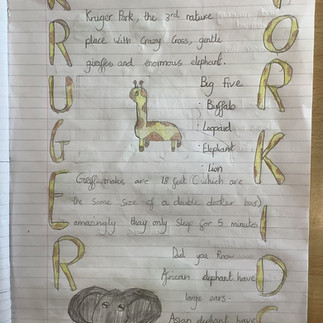 KRUGER
Kruger Park, the 3rd nature
place with Crazy Crocs, gentle
giraffes and enormous elephant.
Big Five
· Buffalo
· Leopard
· Elephant
· Lion
males are 18 feet (which are
the same size of a double decker bus)
amazingly they only sleep for 5 minutes
Did you know
African elephant have
large ears-
Asian elephant have
ORKID